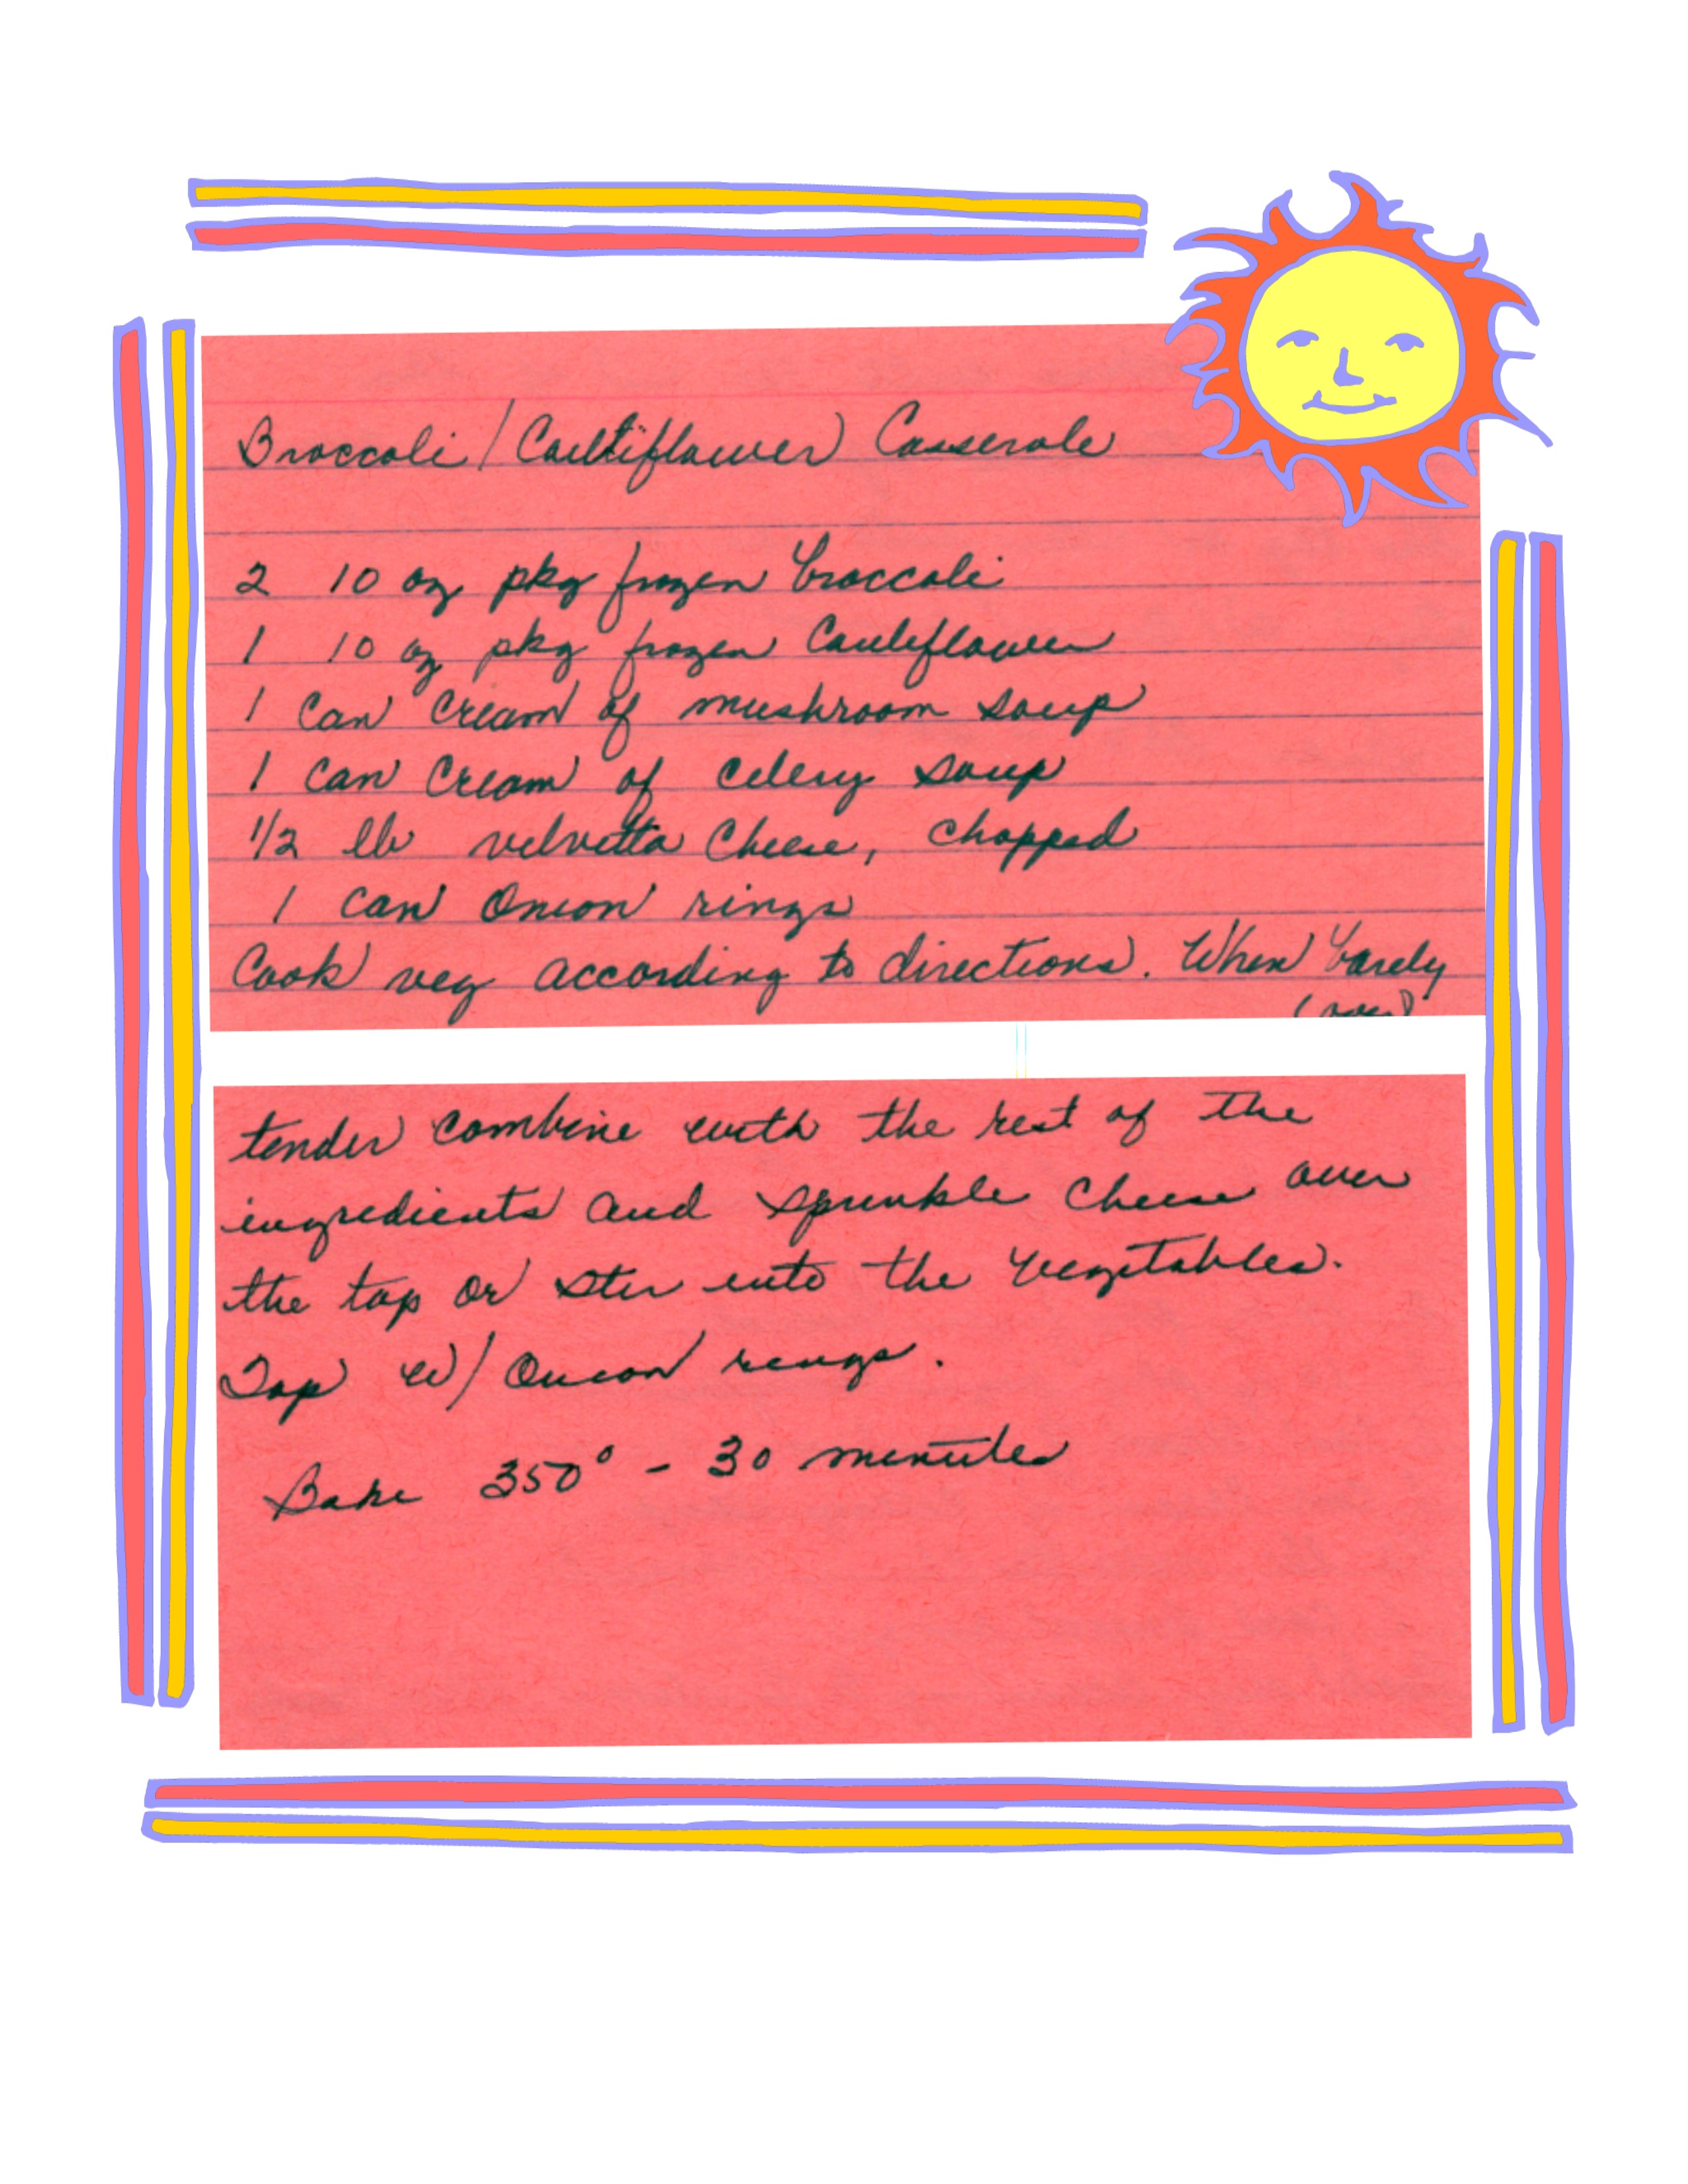 Broccoli / Cauliflower Casserole
2 10 oz pkg frozen broccoli
1 10 oz pkg frozen Cauleflower
1 Can Cream of mushroom soup
1 Can Cream of Celery soup
1/2 lb velvetta Cheese, chopped
1 can Onion rings
Cook veg according to directions. When barely
(over)
tender combine with the rest of the
ingredients and sprinkle cheese over
the top or stir into the vegetables.
Top w/ Onion rings.
Bake 350° - 30 minutes